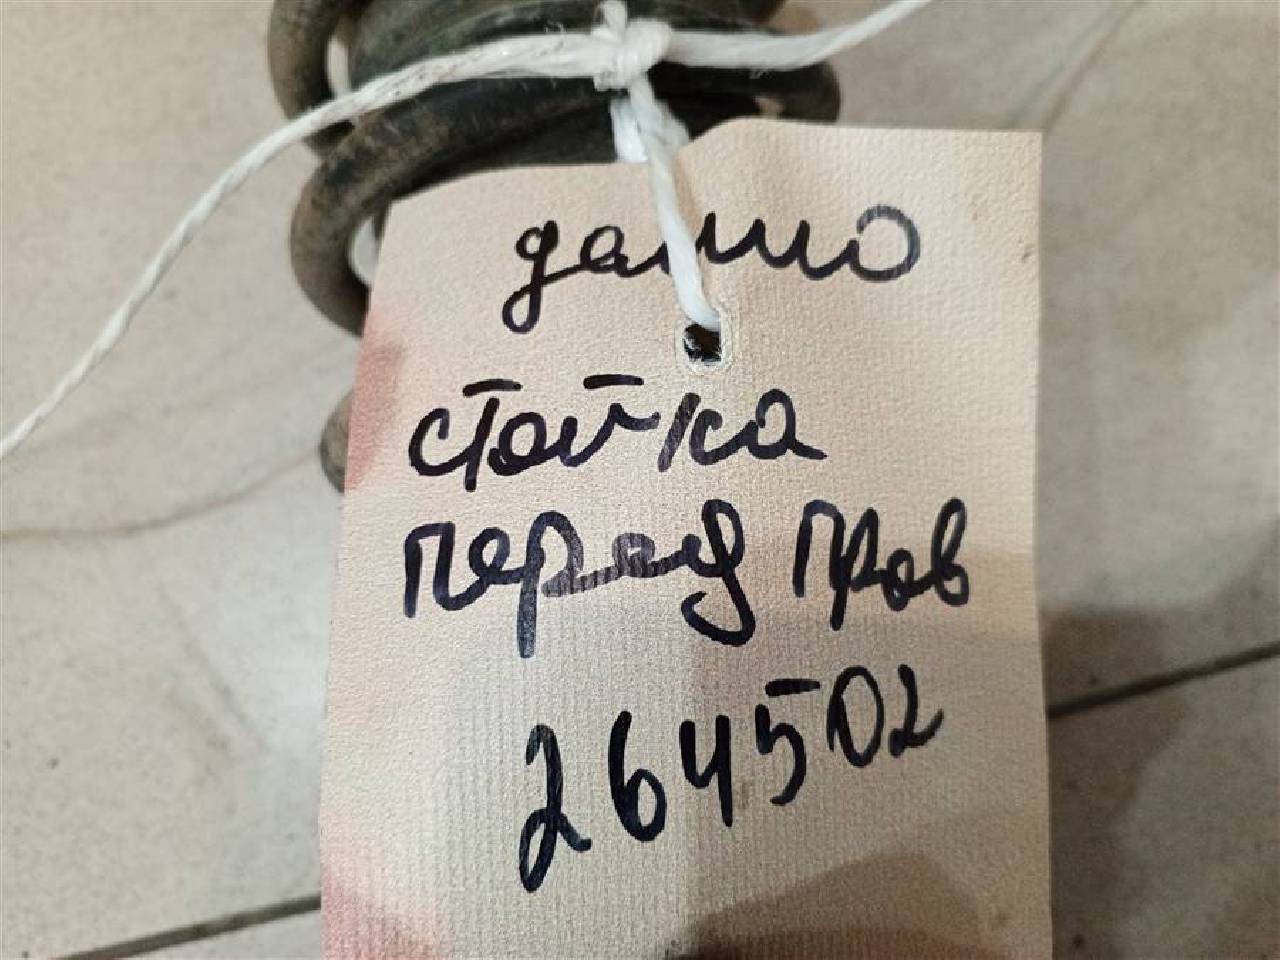 стойка
перед прав
264502